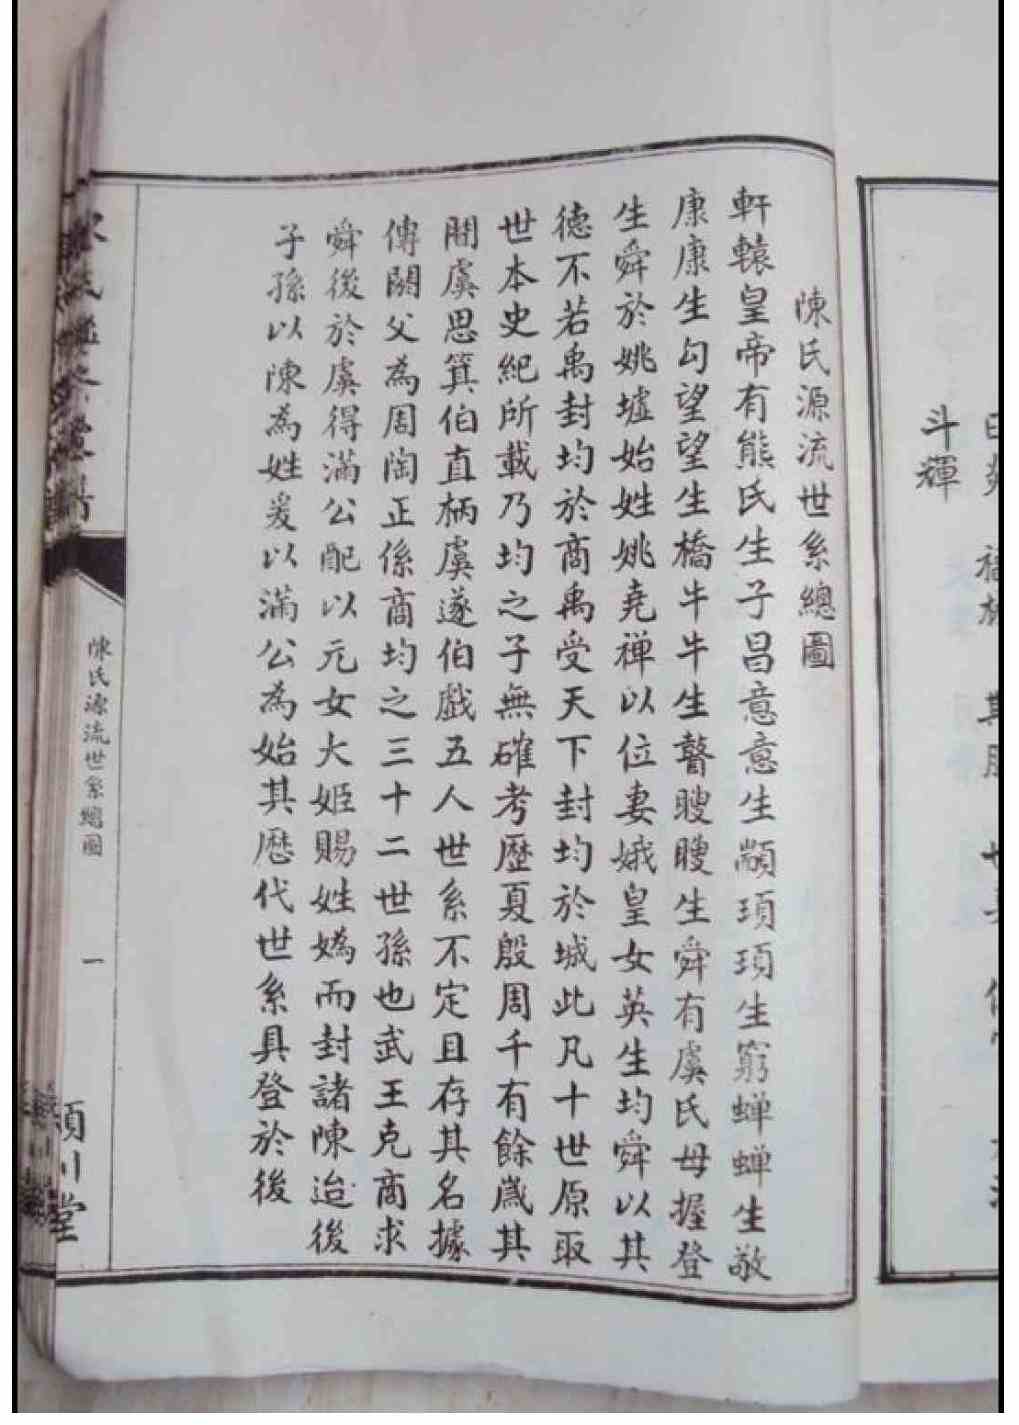 斗輝
陳氏源流世系總圖
軒轅皇帝有熊氏生子昌意意生顓頊頊生窮蟬蟬生敬
康康生勾望望生橋牛牛生瞽瞍瞍生舜有虞氏母握登
生舜於姚墟始姓姚堯禅以位妻娥皇女英生均舜以其
德不若禹封均於商禹受天下封均於城此凡十世原取
世本史紀所載乃均之子無確考歷夏殷周千有餘歲其
間虞思箕伯直柄虞遂伯戲五人世系不定且存其名據
傳閼父為周陶正係商均之三十二世孫也武王克商求
舜後於虞得滿公配以元女大姬賜姓媯而封諸陳迨後
子孫以陳為姓爰以滿公為始其歷代世系具登於後
陳氏源流世系總圖
一
潁川堂